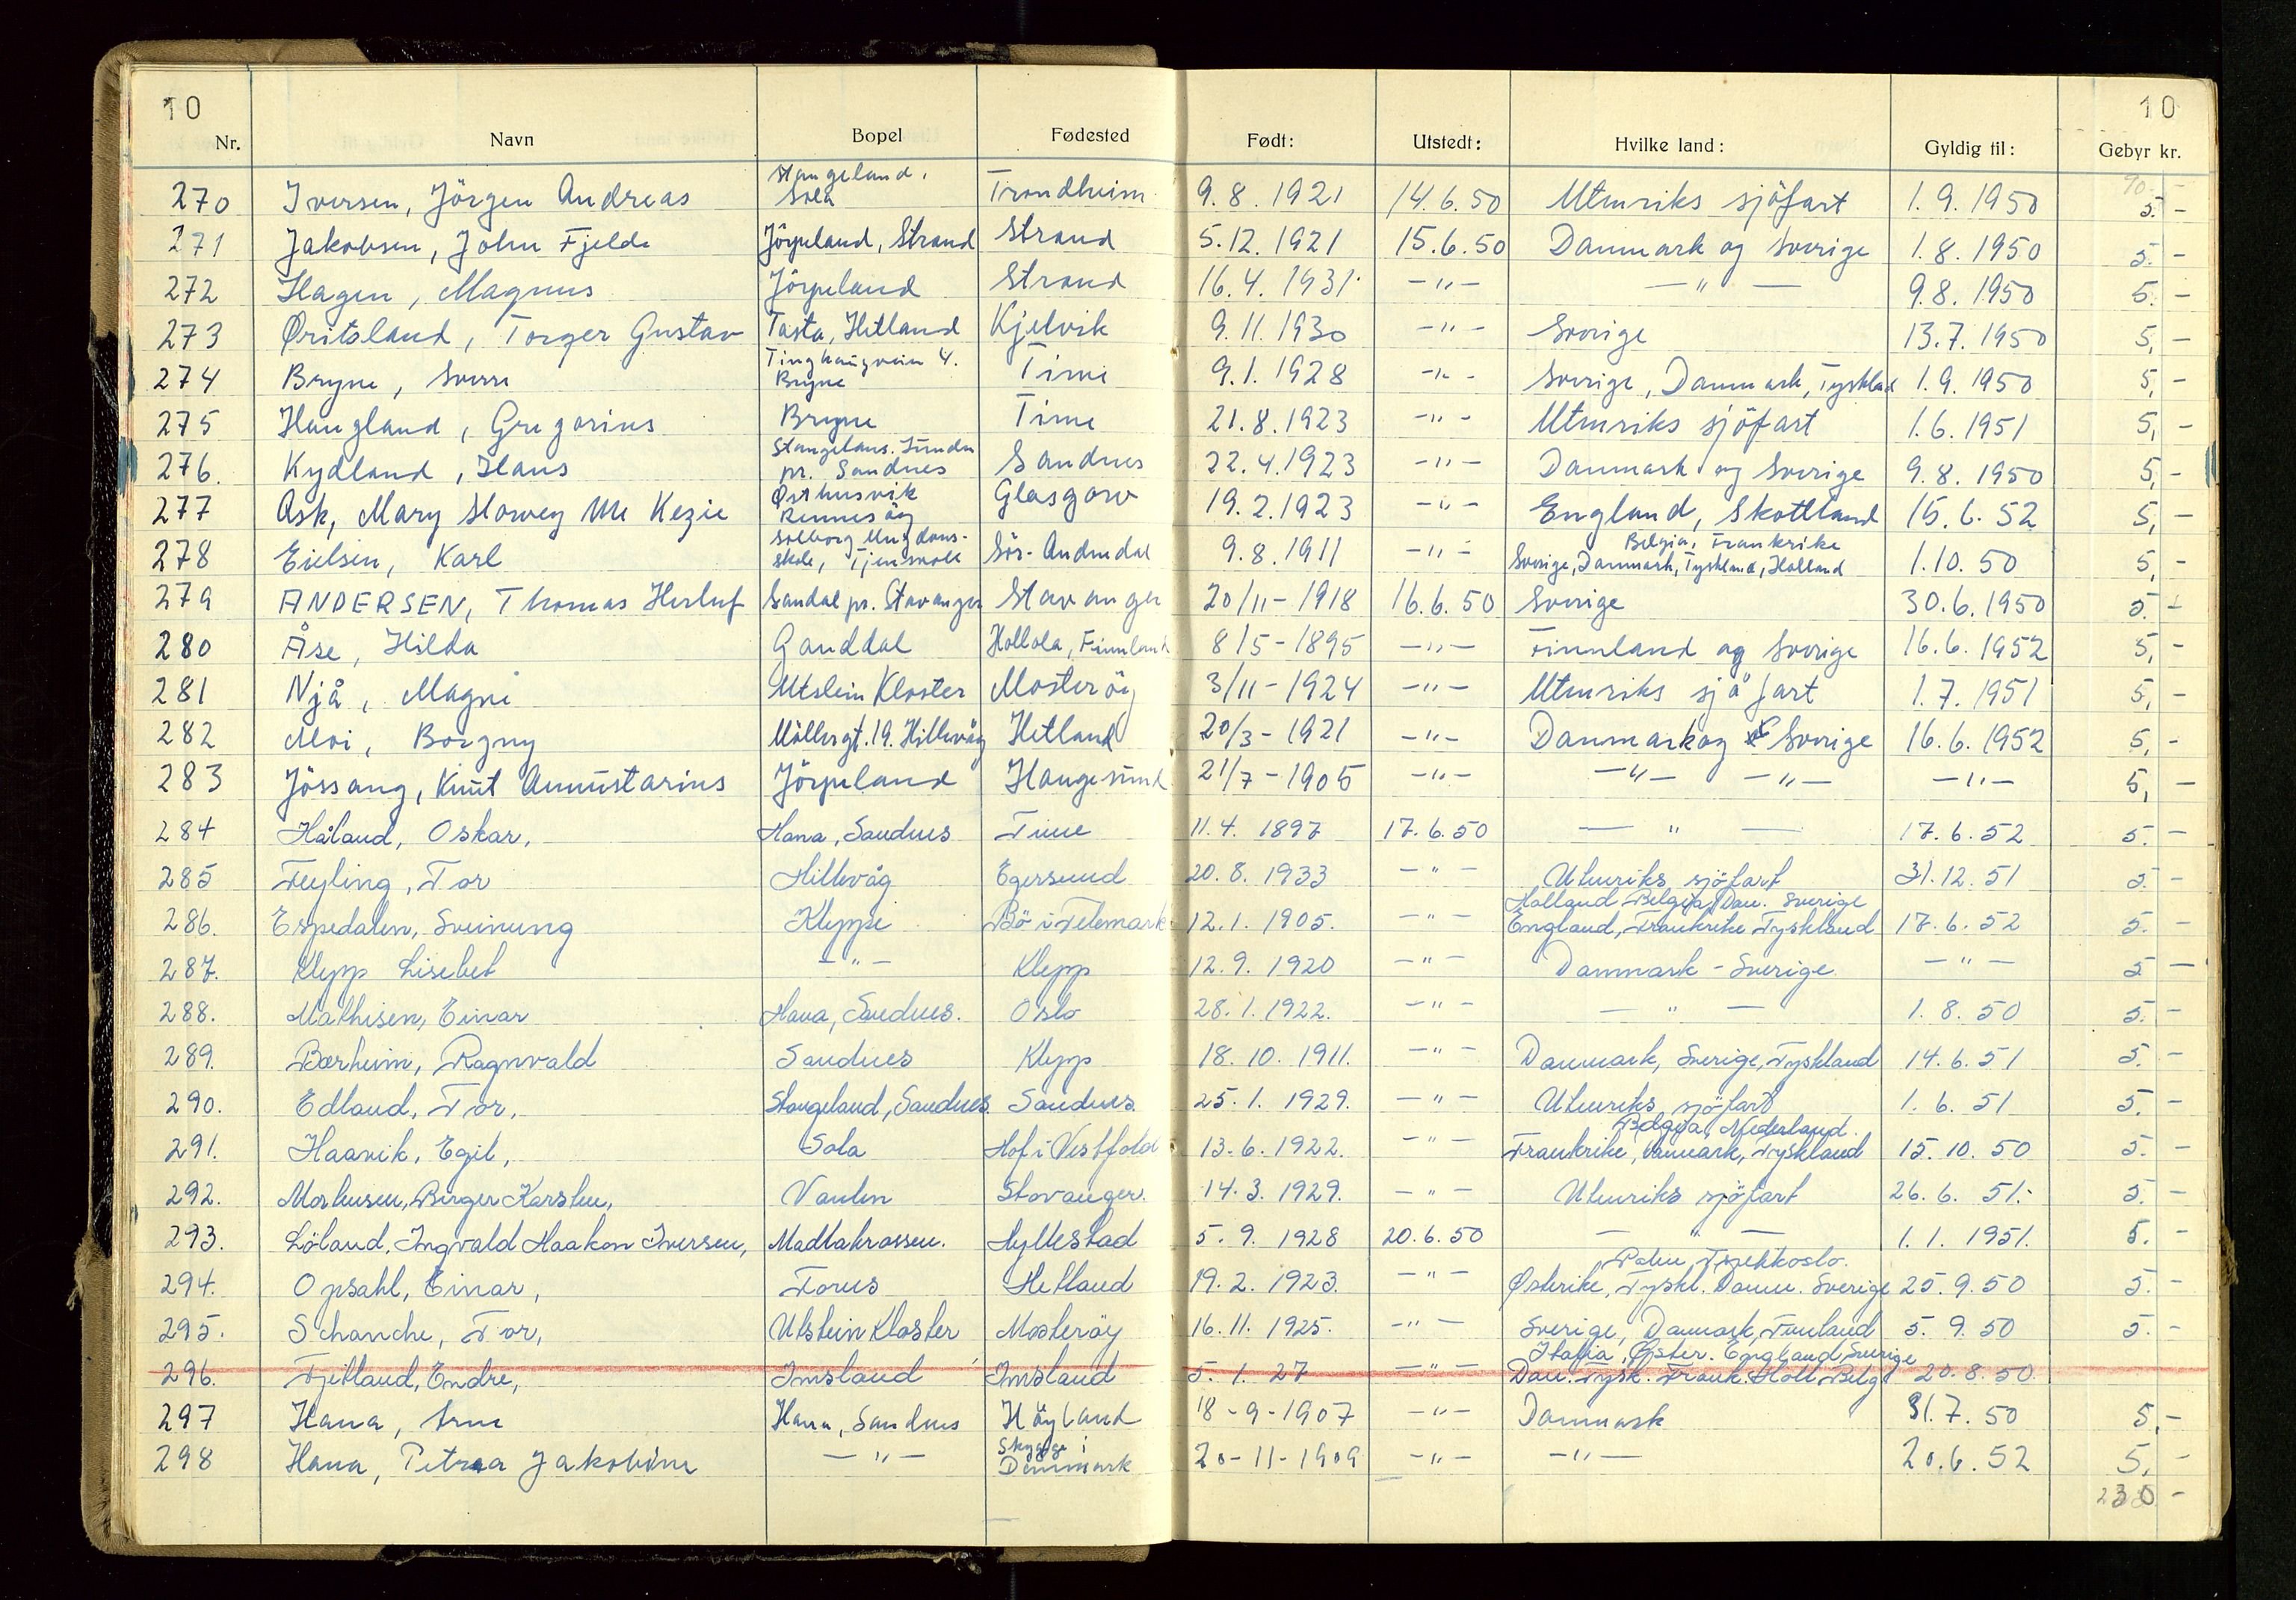 10 10
Nr. Navn Bopel Fødested Født: Utstedt: Hvilke land: Gyldig til: Gebyr kr.
90.-
Stangeland,
270 Iversen, Jörgen Andreas Sola Trondheim 9.8.1921 14.6.50 Utenriks sjöfart 1.9.1950 5.-
271 Jakobsen, John Fjelde Jörpeland, Strand Strand 5.12.1921 15.6.50 Danmark og Sverige 1.8.1950 5.-
272 Hagen, Magnus Jörpeland Strand 16.4.1931 -"- -"- 9.8.1950 5.-
273 Øritsland, Torger Gustav Tasta, Hetland Kjelvik 9.11.1930 -"- Sverige 13.7.1950 5,-
Tinghaugvein 4.
274 Bryne, Sverre Bryne Time 9.1.1928 -"- Sverige, Danmark, Tyskland 1.9.1950 5,-
275 Haugland, Gregorius Bryne Time 21.8.1923 -"- Utenriks sjöfart 1.6.1951 5,-
276. Kydland, Hans pr. Sandnes Sandnes 22.4.1923 -"- Danmark og Sverige 9.8.1950 5,-
Østhusvik
277 Ask, Mary Mc Kezie Rennesöy Glasgow 19.2.1923 -"- England, Skottland 15.6.52 5,-
Solborg Ungdoms- Belgia, Frankrike
278 Eielsen, Karl skole, Tjensvoll Sör-Audnedal 9.8.1911 -"- Sverige, Danmark, Tyskland, Holland 1.10.50 5,-
279 ANDERSEN, Thomas Herluf Sandal pr. Stavanger Stavanger 20/11-1918 16.6.50 Sverige 30.6.1950 5.-
280 Åse, Hilda Ganddal Hollola, Finnland 8/5-1895 -"- Finnland og Sverige 16.6.1952 5,-
281 Njå, Magne Utstein Kloster Mosteröy 3/11-1924 -"- Utenriks sjöfart 1.7.1951 5,-
282 Moi, Borgny Möllergt. 19. Hillevåg Hetland 20/3-1921 -"- Danmark og Sverige 16.6.1952 5,-
283 Jössang, Knut Jörpeland Haugesund 21/7-1905 -"- -"- -"- -"- 5,-
284 Håland, Oskar, Hana, Sandnes Time 11.4.1897 17.6.50 -"- 17.6.52 5.-
285 Feyling, Tor Hillevåg Egersund 20.8.1933 -"- Utenriks sjöfart 31.12.51 5.-
Holland Belgia, Dan. Sverige
286. Espedalen, Sveinung Kleppe Bö i Telemark 12.1.1905. -"- England, Frankrike Tyskland 17.6.52 5.-
287. Klepp Lisebet -"- Klepp 12.9.1920 -"- Danmark - Sverige. -"- 5-
288. Mathisen, Einar Hana, Sandnes. Oslo 28.1.1922. -"- -"- 1.8.50 5.-
289. Bærheim, Ragnvald Sandnes Klepp 18.10.1911. -"- Danmark, Sverige, Tyskland 14.6.51 5.-
290. Edland, Tor, Stangeland, Sandnes Sandnes. 25.1.1929. -"- Utenriks sjöfart 1.6.51 5.-
Belgia, Nederland.
291. Haavik, Egil, Sola Hof i Vestfold 13.6.1922. -"- Frankrike, Danmark, Tyskland 15.10.50 5.-
292. Mortensen, Birger Karsten, Vaulen Stavanger. 14.3.1929. -"- Utenriks sjöfart 26.6.51.- 5.-
293. Löland, Ingvald Haakon Iversen, Madlakrossen. Hyllestad 5.9.1928 20.6.50 -"- 1.1.1951. 5.-
Polen, Tsjekkoslo.
294. Opsahl, Einar, Forus Hetland 19.2.1923. -"- Østerike, Tyskl. Danm. Sverige 25.9.50 5.-
295. Schanche, Tor, Utstein Kloster Mosteröy 16.11.1925. -"- Sverige, Danmark, Finland 5.9.50 5.-
Italia, Øster. England, Sverige
296. Tjetland, Endre, Imsland Imsland 5.1.27 -"- Dan. Tysk. Frank. Holl. Belg 20.8.50.
297 Hana, Arne Hana, Sandnes Höyland 18-9-1907 -"- Danmark 31.7.50 5,-
Skygge i
298 Hana, Petrea Jakobine -"- Danmark 20-11-1909 -"- -"- 20.6.52 5,-